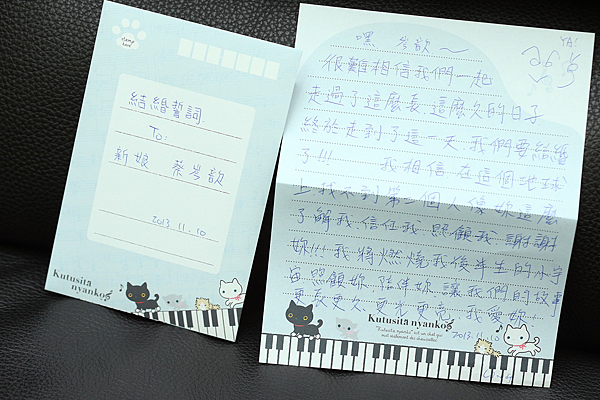 stamp here
結婚誓詞
To:
新娘 蔡岑歆
2013.11.10
Kutusita nyanko
YA!
嘿, 岑歆~
很難相信我們一起
走過了這麼長、這麼久的日子
終於走到了這一天,我們要結婚
了!!! 我相信,在這個地球
上找不到第二個人像妳這麼
了解我、信任我、照顧我,謝謝
妳!!! 我將燃燒我後半生的小宇
宙照顧妳、陪伴妳,讓我們的故事
更長更久、更光更亮,我愛妳
Kutusita nyanko
"Kutusita nyanko" est un chat qui
met réellement des chaussettes.
2013.11.10